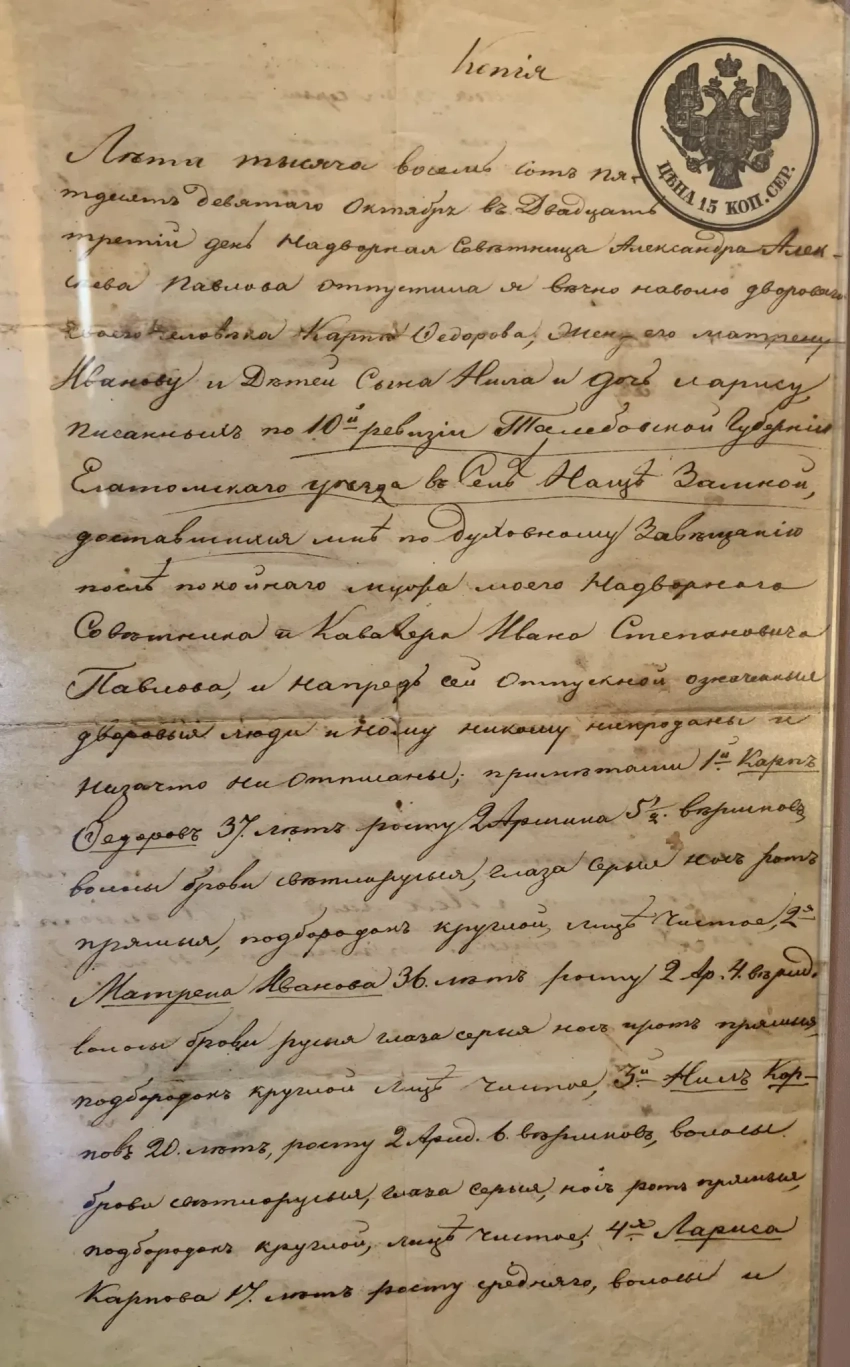 Копія
ЦѢНА 15 КОП. СЕР.
Лѣта тысяча восемь сотъ пя-
тдесятъ девятаго Октября въ Двадцать
третій день Надворная Совѣтница Александра Алек-
сѣева Павлова отпустила я вѣчно наволю двороваго
своего человѣка Карпа Ѳедорова, Жену его матрену
Иванову и Дѣтей Сына Нила и дочь ларису,
писанныхъ по 10й ревизіи Тамбовской Губерніи
Елатомскаго уѣзда въ Селѣ
доставшихся мнѣ по духовному Завѣщанію
послѣ покойнаго мужа моего Надворнаго
Совѣтника и Кавалера Ивана Степановича
Павлова, и напредъ сей отпускной означенныя
дворовыя люди иному никому непроданы и
низачто не отписаны; примѣтами 1й Карпъ
Ѳедоровъ 37. лѣтъ росту 2 Аршина 5½. вершковъ,
волосы брови свѣтлорусыя, глаза серыя носъ ротъ
прямыя, подбородокъ круглой, лицѣ чистое, 2я
Матрена Иванова 36. лѣтъ росту 2 Ар. 4. вѣрш.
волосы брови русыя глаза серыя носъ иротъ прямыя,
подбородокъ круглой лицѣ чистое, 3й Нилъ Кар-
повъ 20. лѣтъ, росту 2 Арш. 6. вѣршковъ, волосы
брови свѣтлорусыя, глаза серыя, носъ ротъ прямыя,
подбородокъ круглой, лицѣ чистое, 4я Лариса
Карпова 17. лѣтъ росту средняго, волосы и